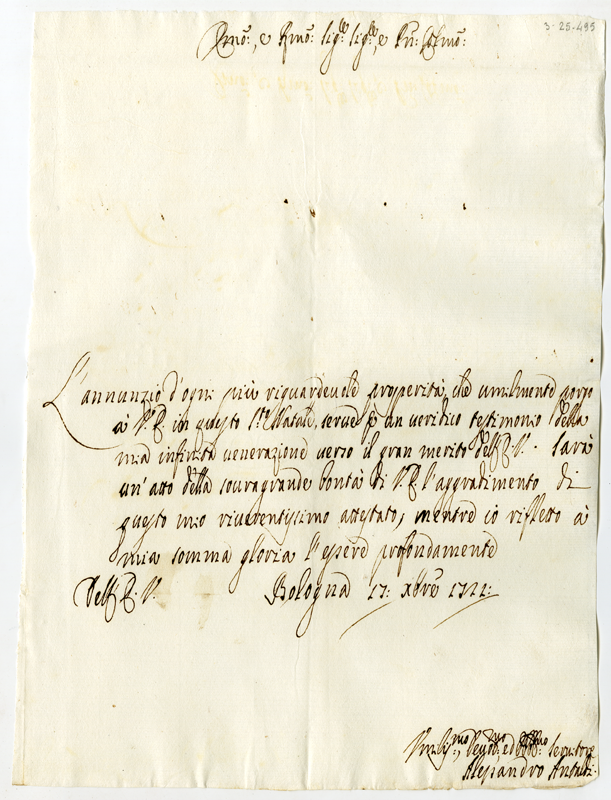 3-25-495
Emo:, e Rmo: Sig:re Sig:re, e Pn: Colmo:
L'annunzio d'ogni più riguardevole prosperità, che umilmente porgo
à V. E. in questo S.to Natale, serve p un veridico testimonio della
mia infinita venerazione verso il gran merito dell'E. V. Sarà
un'atto della sovragrande bontà di V. E. l'aggradimento di
questo mio riverentissimo attestato, mentre io rifletto à
mia somma gloria l'essere profondamente
Dell'E. V. Bologna 17: Xbre 1721:
Umilis.mo, Devot.mo ed Servitore
Alessandro